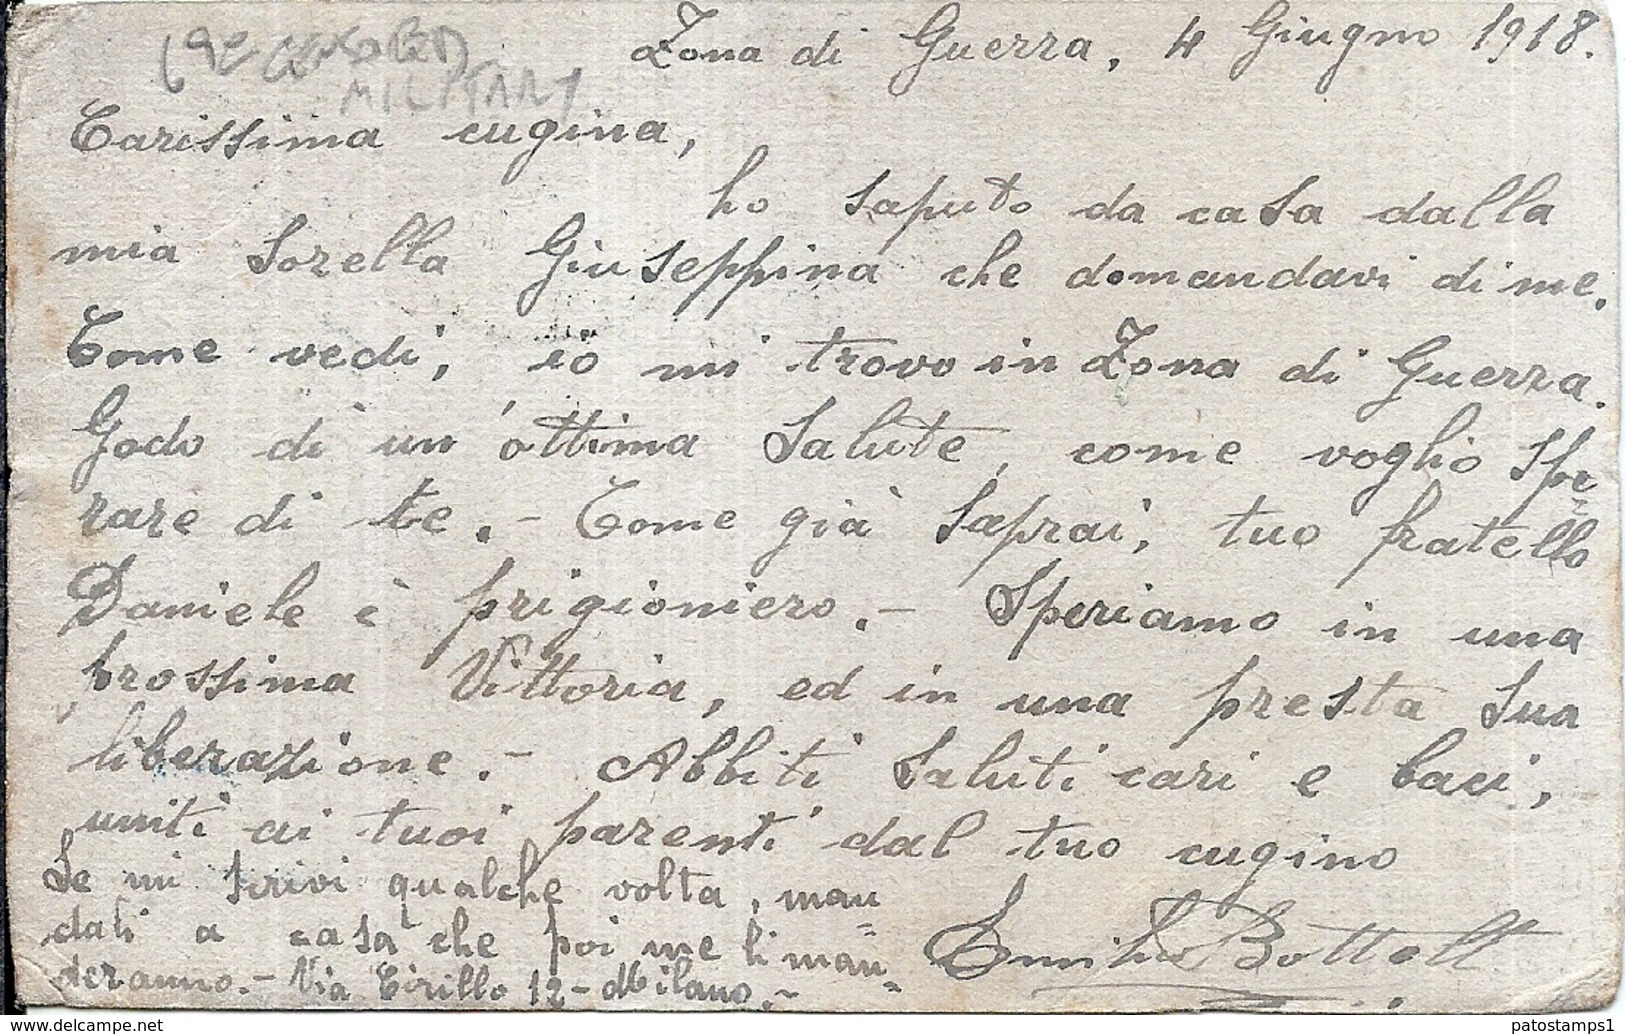 Zona di Guerra, 4 Giugno 1918.
CENSORED
MILITARY
Carissima cugina,
ho saputo da casa dalla
mia sorella Giuseppina che domandavi di me.
Come vedi, io mi trovo in Zona di Guerra.
Godo di un'ottima salute, come voglio spe
rare di te. - Come già saprai, tuo fratello
Daniele è prigioniero. - Speriamo in una
prossima Vittoria, ed in una presta sua
liberazione. - Abbiti saluti cari e baci,
uniti ai tuoi parenti dal tuo cugino
Se mi scrivi qualche volta, man=
dali a casa che poi me li man=
deranno. - Via Cirillo 12 - Milano. -
Emilio
patostamps1
delcampe.net